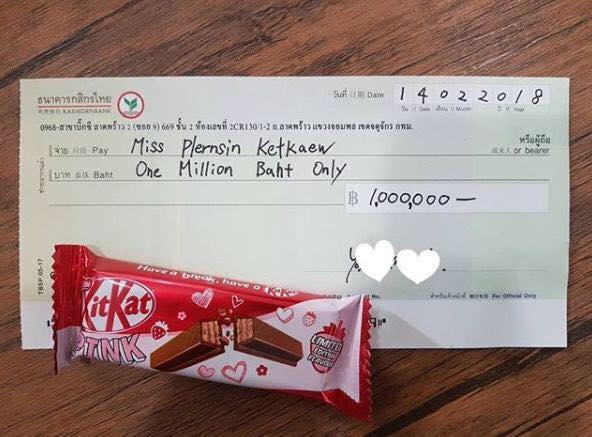 ธนาคารกสิกรไทย
开泰银行 KASIKORNBANK
วันที่ 日期 Date 14022018
วัน 日 Day เดือน 月 Month ปี 年 Year
0968-สาขาบิ๊กซี ลาดพร้าว 2 (ซอย 9) 669 ชั้น 2 ห้องเลขที่ 2CR130/1-2 ถ.ลาดพร้าว แขวงจอมพล เขตจตุจักร กทม.
จ่าย 付给 Pay Miss Plernsin Ketkaew
หรือผู้ถือ
或来人 or bearer
บาท 泰铢 Baht One Million Baht Only
฿ 1,000,000 —
TBSP 05-17
No.
สำหรับเจ้าหน้าที่ 银行专用 For Official Only
Have a break, have a KitKat
KitKat
PTINK
LIMITED
EDITION
FLAVOUR